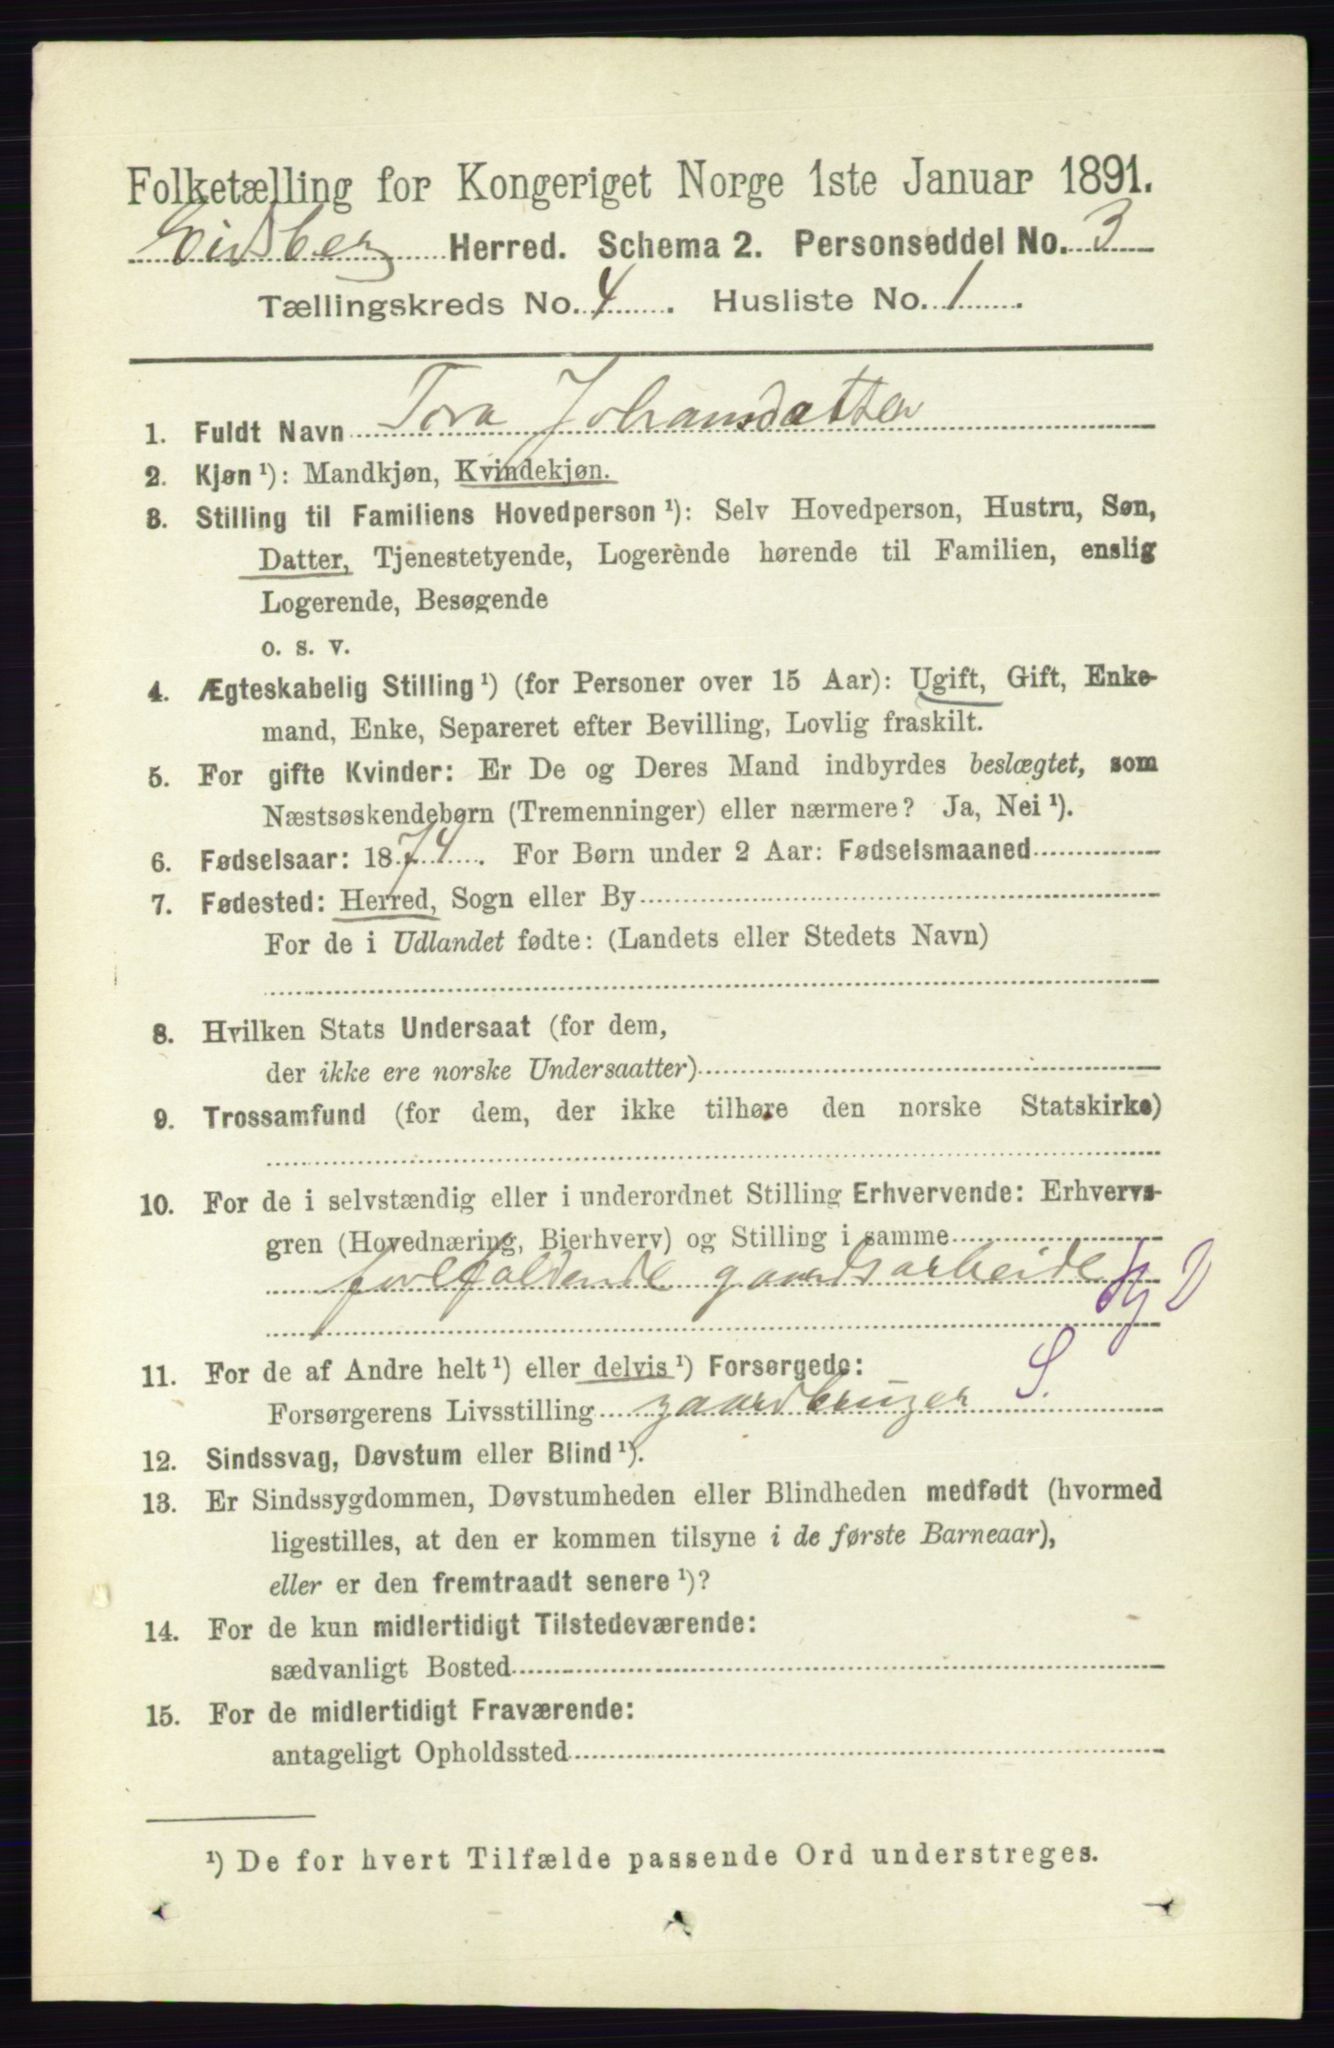 Folketælling for Kongeriget Norge 1ste Januar 1891.
Eidsberg Herred. Schema 2. Personseddel No. 3
Tællingskreds No. 4. Husliste No. 1.
1. Fuldt Navn Tora Johansdatter
2. Kjøn ¹): Mandkjøn, Kvindekjøn.
3. Stilling til Familiens Hovedperson ¹): Selv Hovedperson, Hustru, Søn,
Datter, Tjenestetyende, Logerende hørende til Familien, enslig
Logerende, Besøgende
o. s. v.
4. Ægteskabelig Stilling ¹) (for Personer over 15 Aar): Ugift, Gift, Enke-
mand, Enke, Separeret efter Bevilling, Lovlig fraskilt.
5. For gifte Kvinder: Er De og Deres Mand indbyrdes beslægtet, som
Næstsøskendebørn (Tremenninger) eller nærmere? Ja, Nei ¹).
6. Fødselsaar: 1874. For Børn under 2 Aar: Fødselsmaaned
7. Fødested: Herred, Sogn eller By
For de i Udlandet fødte: (Landets eller Stedets Navn)
8. Hvilken Stats Undersaat (for dem,
der ikke ere norske Undersaatter)
9. Trossamfund (for dem, der ikke tilhøre den norske Statskirke)
10. For de i selvstændig eller i underordnet Stilling Erhvervende: Erhvervs-
gren (Hovednæring, Bierhverv) og Stilling i samme
forefaldende gaardsarbeide
11. For de af Andre helt ¹) eller delvis ¹) Forsørgede: S.
Forsørgerens Livsstilling gaardbruger
12. Sindssvag, Døvstum eller Blind ¹).
13. Er Sindssygdommen, Døvstumheden eller Blindheden medfødt (hvormed
ligestilles, at den er kommen tilsyne i de første Barneaar),
eller er den fremtraadt senere ¹)?
14. For de kun midlertidigt Tilstedeværende:
sædvanligt Bosted
15. For de midlertidigt Fraværende:
antageligt Opholdssted
¹) De for hvert Tilfælde passende Ord understreges.